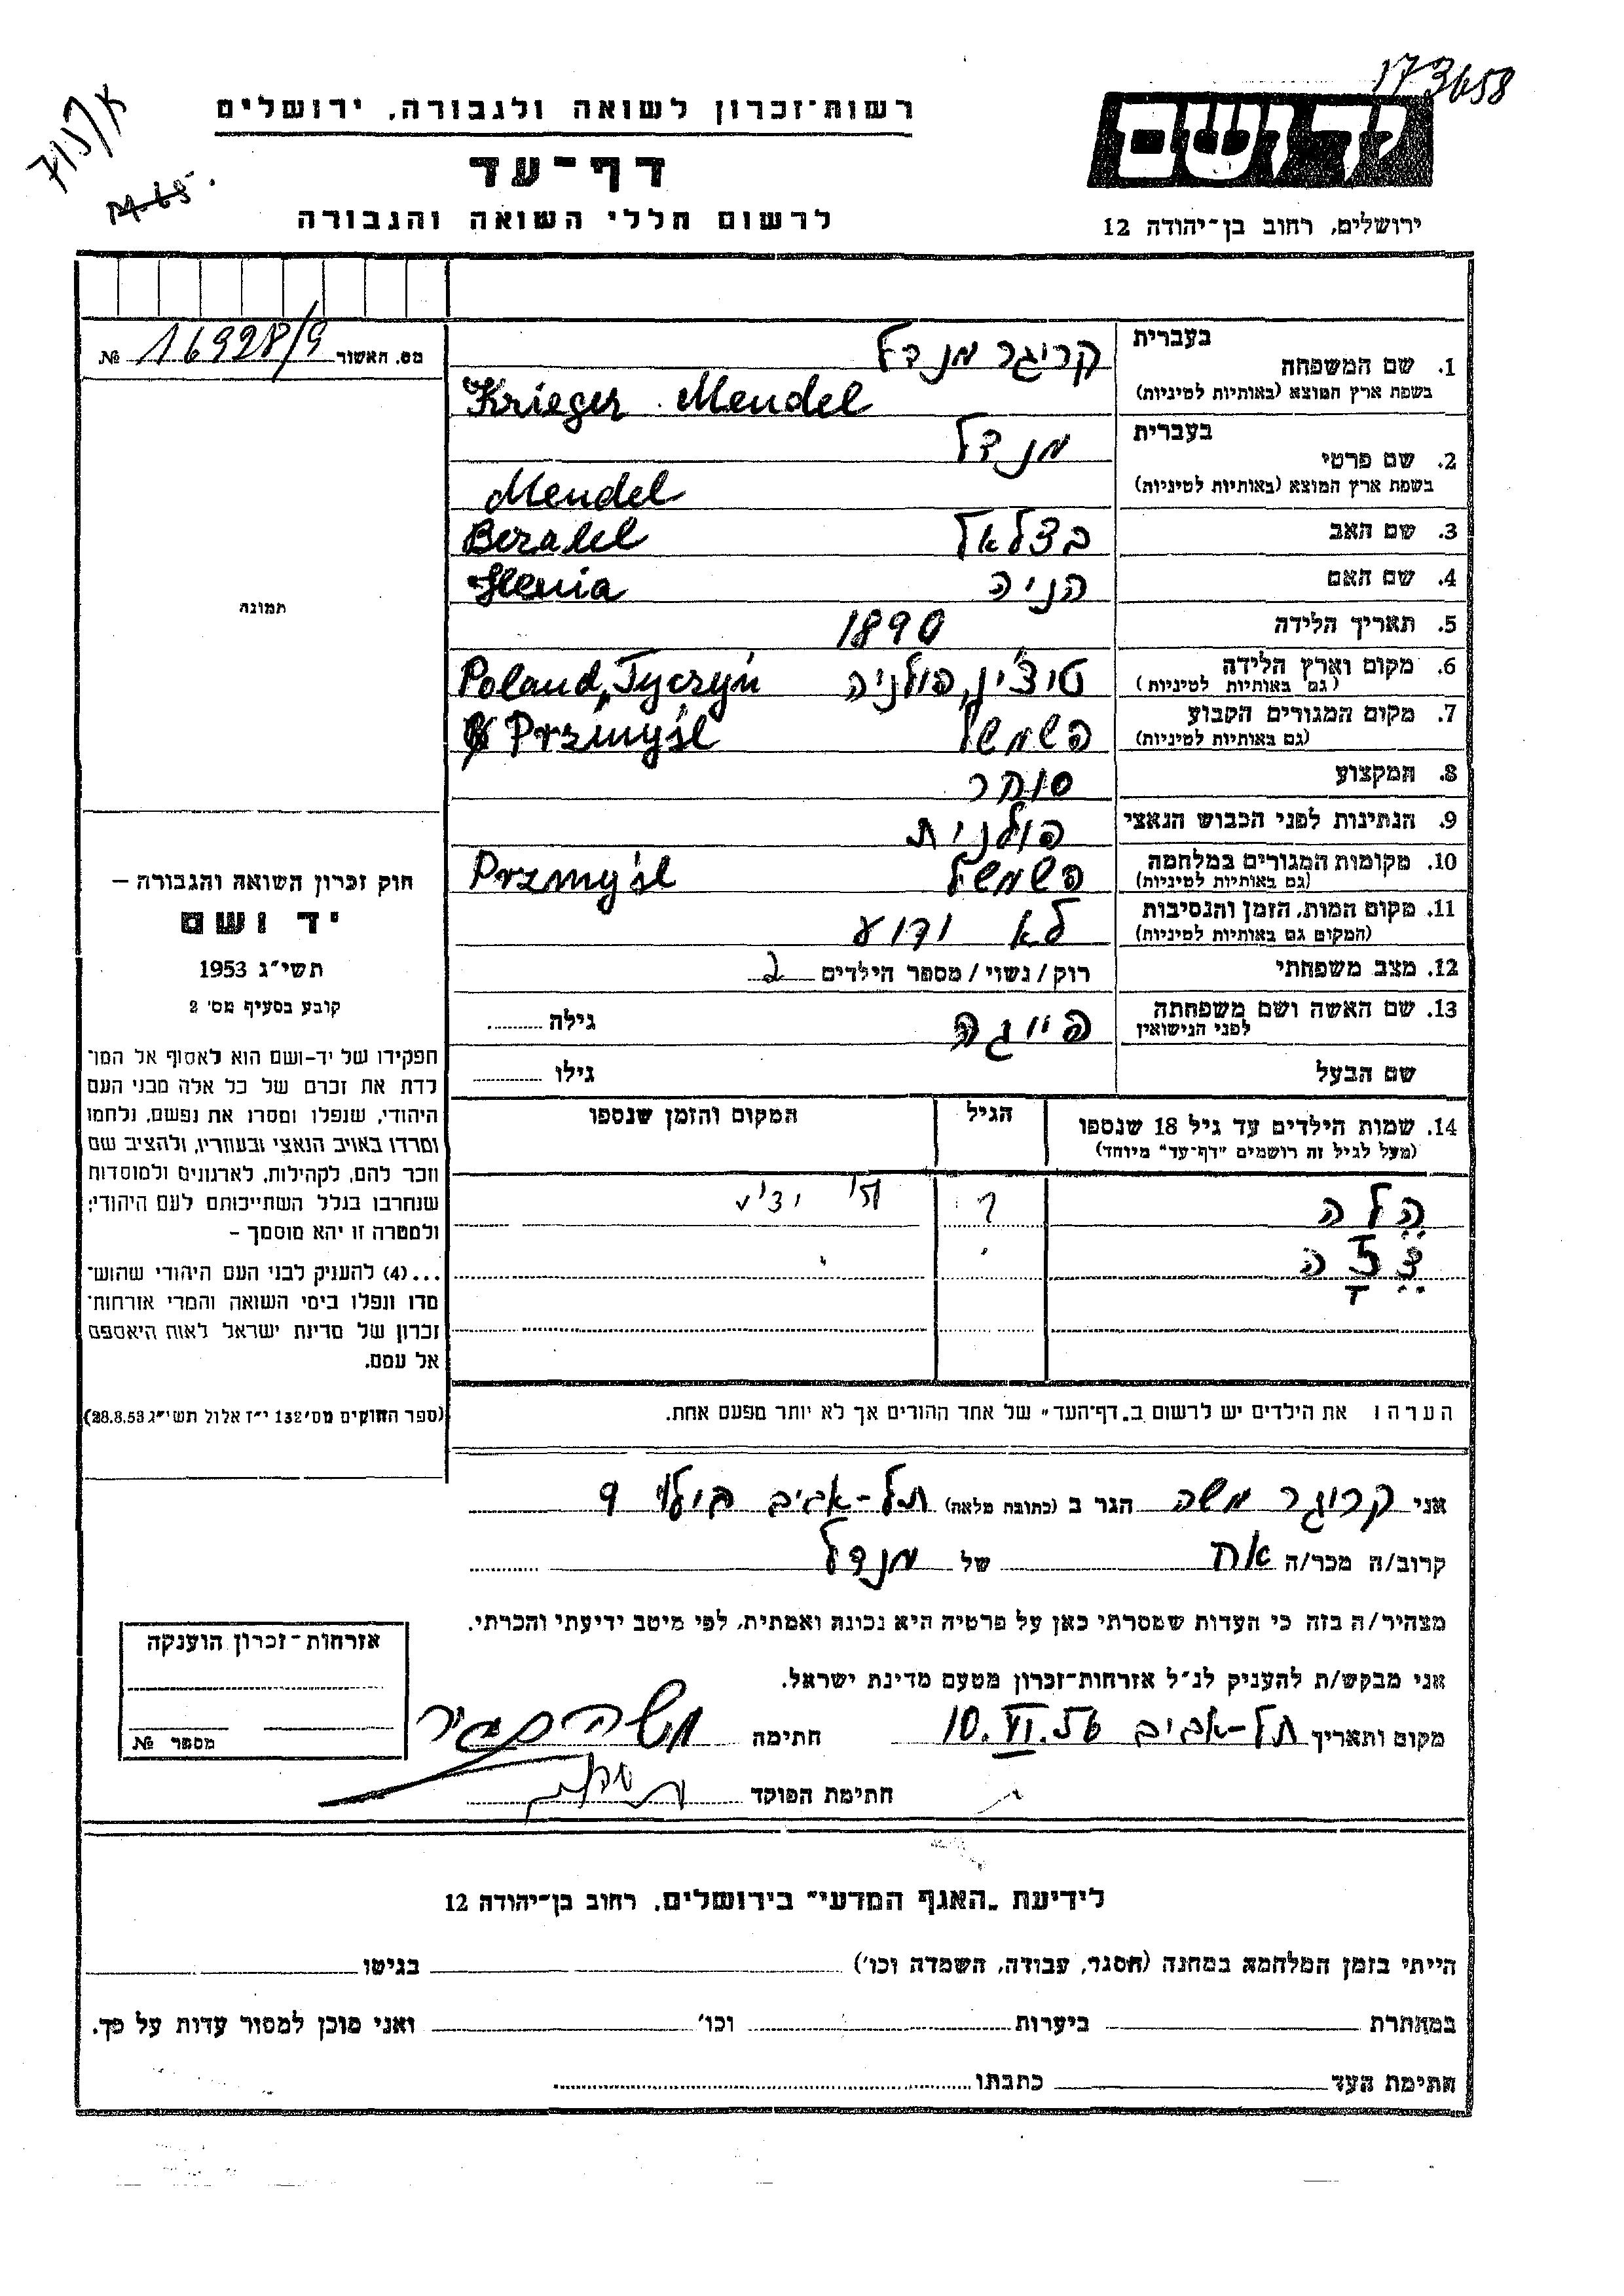 173658
רשות־זכרון לשואה ולגבורה, ירושלים
יד ושם
דף־עד
14.65
לרשום חללי השואה והגבורה
ירושלים, רחוב בן־יהודה 12
מס. האשור 16928/9 №
בעברית קריגר מנדל
1. שם המשפחה
בשפת ארץ המוצא (באותיות לטיניות) Krieger Mendel
בעברית מנדל
2. שם פרטי
בשפת ארץ המוצא (באותיות לטיניות) Mendel
3. שם האב בצלאל Bezalel
4. שם האם הניה Henia
תמונה
5. תאריך הלידה 1890
6. מקום וארץ הלידה טיצ'ין, פולניה Poland, Tyczyń
(גם באותיות לטיניות)
7. מקום המגורים הקבוע פשמשל Przimyśl
(גם באותיות לטיניות)
8. המקצוע סוחר
9. הנתינות לפני הכבוש הנאצי פולנית
10. מקומות המגורים במלחמה פשמשל Przmyśl
(גם באותיות לטיניות)
11. מקום המות, הזמן והנסיבות לא ידוע
(המקום גם באותיות לטיניות)
12. מצב משפחתי רוק/נשוי/מספר הילדים 2
13. שם האשה ושם משפחתה פייגה גילה
לפני הנישואין
שם הבעל גילו
חוק זכרון השואה והגבורה –
יד ושם
תשי"ג 1953
קובע בסעיף מס' 2
תפקידו של יד-ושם הוא לאסוף אל המו־
לדת את זכרם של כל אלה מבני העם
היהודי, שנפלו ומסרו את נפשם, נלחמו
ומרדו באויב הנאצי ובעוזריו, ולהציב שם
וזכר להם, לקהילות, לארגונים ולמוסדות
שנחרבו בגלל השתייכותם לעם היהודי;
ולמטרה זו יהא מוסמך –
...(4) להעניק לבני העם היהודי שהוש־
מדו ונפלו בימי השואה והמרי אזרחות־
זכרון של מדינת ישראל לאות היאספם
אל עמם.
(ספר החוקים מס' 132 י"ז אלול תשי"ג 28.8.53)
14. שמות הילדים עד גיל 18 שנספו הגיל המקום והזמן שנספו
(מעל לגיל זה רושמים "דף-עד" מיוחד)
הלה ?
הערה: את הילדים יש לרשום ב„דף־העד" של אחד ההורים אך לא יותר מפעם אחת.
אני קריגר משה הגר ב (כתובת מלאה) תל-אביב בילוי 9
קרוב/ה מכר/ה אח של מנדל
מצהיר/ה בזה כי העדות שמסרתי כאן על פרטיה היא נכונה ואמתית, לפי מיטב ידיעתי והכרתי.
אני מבקש/ת להעניק לנ"ל אזרחות-זכרון מטעם מדינת ישראל.
מקום ותאריך תל-אביב 10.VI.56 חתימה
חתימת הפוקד
אזרחות-זכרון הוענקה
מספר №
לידיעת „האגף המדעי" בירושלים, רחוב בן־יהודה 12
הייתי בזמן המלחמה במחנה (הסגר, עבודה, השמדה וכו') בגיטו
במחתרת ביערות וכו' ואני מוכן למסור עדות על כך.
חתימת העד כתבתו